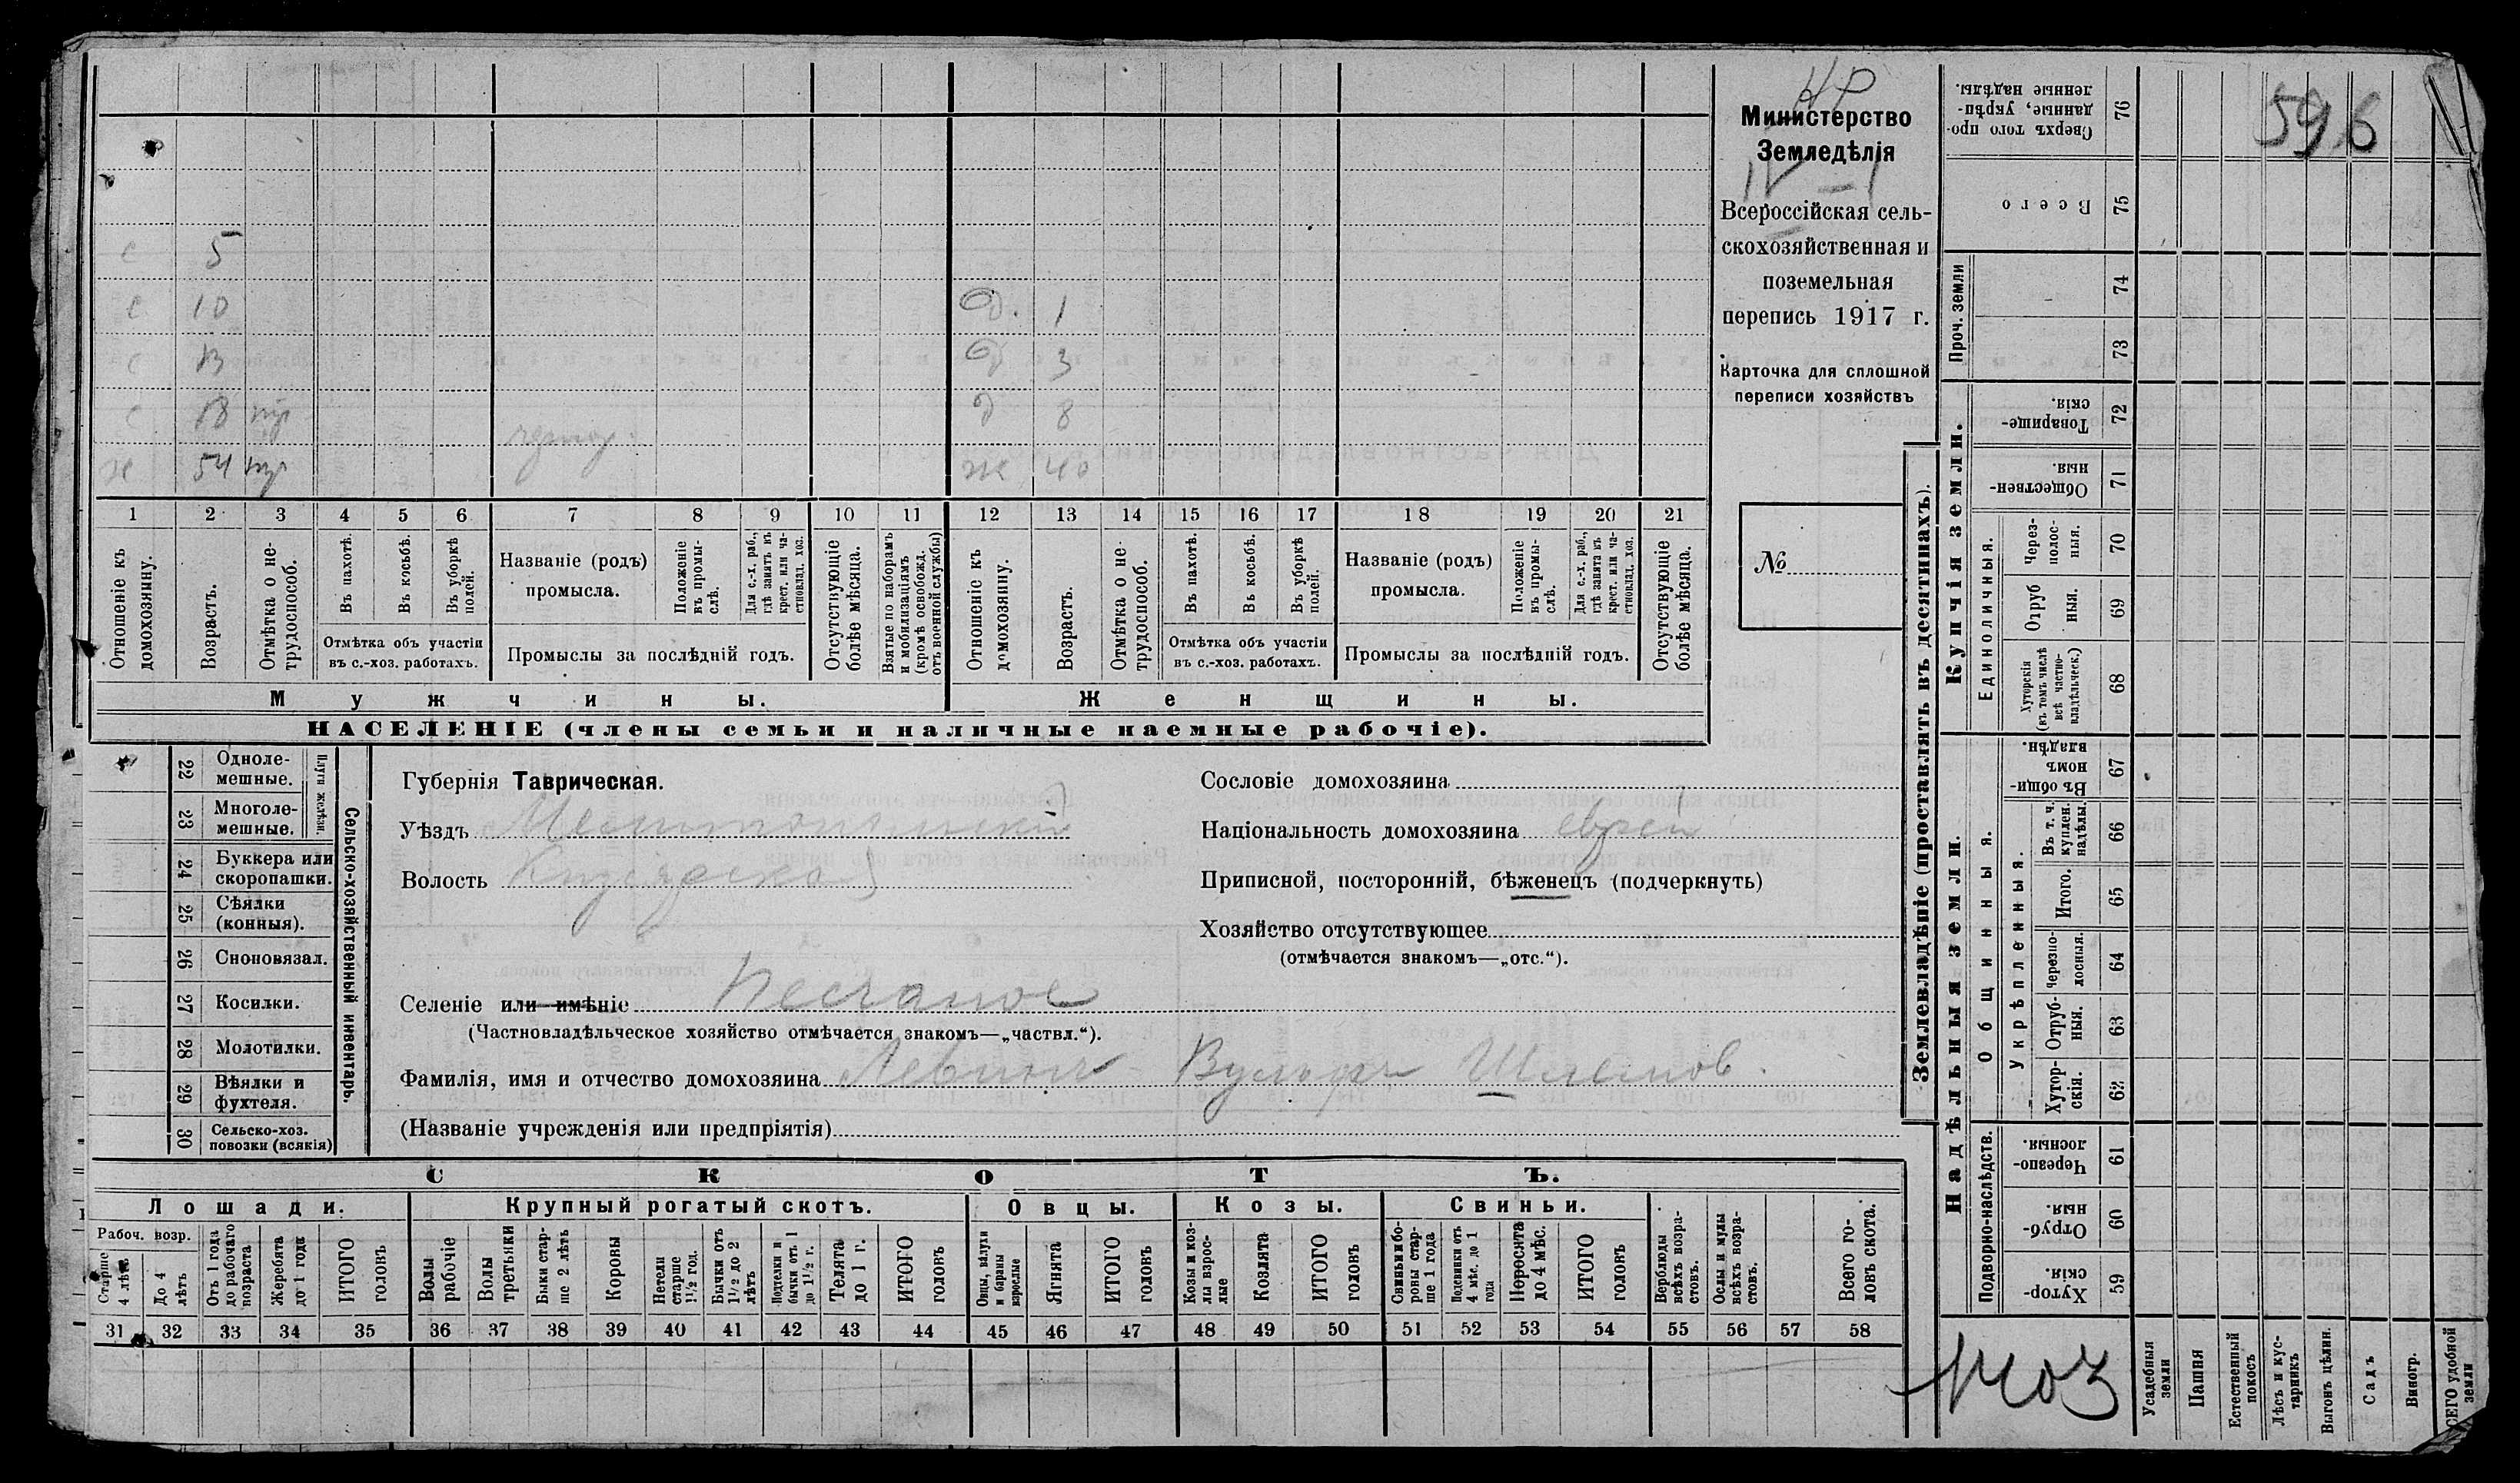 НР
Министерство
Земледѣлія
IV – 1
Всероссійская сель-
скохозяйственная и
поземельная
перепись 1917 г.
Карточка для сплошной
переписи хозяйствъ
№
596
с 5
с 10
д. 1
с 13
д 3
с 18
д 8
х 54
ж 40
1 2 3 4 5 6 7 8 9 10 11 12 13 14 15 16 17 18 19 20 21
Отношеніе къ домохозяину.
Возрастъ.
Отмѣтка о не-трудоспособ.
Въ пахотѣ.
Въ косьбѣ.
Въ уборкѣ полей.
Отмѣтка объ участіи въ с.-хоз. работахъ.
Названіе (родъ) промысла.
Положеніе въ промы-слѣ.
Для с.-х. раб., гдѣ занятъ въ крест. или ча-стновлад. хоз.
Промыслы за послѣдній годъ.
Отсутствующіе болѣе мѣсяца.
Взятые по наборамъ и мобилизаціямъ (кромѣ освобожд. отъ военной службы)
Отношеніе къ домохозяину.
Возрастъ.
Отмѣтка о не-трудоспособ.
Въ пахотѣ.
Въ косьбѣ.
Въ уборкѣ полей.
Отмѣтка объ участіи въ с.-хоз. работахъ.
Названіе (родъ) промысла.
Положеніе въ промы-слѣ.
Для с.-х. раб., гдѣ занята въ крест. или ча-стновлад. хоз.
Промыслы за послѣдній годъ.
Отсутствующіе болѣе мѣсяца.
Мужчины.
Женщины.
НАСЕЛЕНІЕ (члены семьи и наличные наемные рабочіе).
22 Одноле-мешные.
23 Многоле-мешные.
Плуги желѣзн.
24 Буккера или скоропашки.
25 Сѣялки (конныя).
26 Сноповязал.
27 Косилки.
28 Молотилки.
29 Вѣялки и фухтеля.
30 Сельско-хоз. повозки (всякія)
Сельско-хозяйственный инвентарь.
Губернія Таврическая.
Уѣздъ Мелитопольскій
Волость Кизіярская
Селеніе или имѣніе Песчаное
(Частновладѣльческое хозяйство отмѣчается знакомъ—„частвл.“).
Фамилія, имя и отчество домохозяина Левинъ Вульфъ Шлемов.
(Названіе учрежденія или предпріятія)
Сословіе домохозяина
Національность домохозяина еврей
Приписной, посторонній, бѣженецъ (подчеркнуть)
Хозяйство отсутствующее
(отмѣчается знакомъ—„отс.“).
СКОТЪ.
Лошади.
Крупный рогатый скотъ.
Овцы.
Козы.
Свиньи.
Рабоч. возр.
Старше 4 лѣтъ
До 4 лѣтъ
Отъ 1 года до рабочаго возраста
Жеребята до 1 года
ИТОГО головъ
Волы рабочіе
Волы третьяки
Быки стар-ше 2 лѣтъ
Коровы
Нетели старше 1½ год.
Бычки отъ 1½ до 2 лѣтъ
Подтелки и бычки отъ 1 до 1½ г.
Телята до 1 г.
ИТОГО головъ
Овцы, валухи и бараны взрослые
Ягнята
ИТОГО головъ
Козы и коз-лы взрос-лые
Козлята
ИТОГО головъ
Свиньи и бо-ровы стар-ше 1 года
Подсвинки отъ 4 мѣс. до 1 года
Поросята до 4 мѣс.
ИТОГО головъ
Верблюды всѣхъ возра-стовъ.
Ослы и мулы всѣхъ возра-стовъ.
Всего го-ловъ скота.
31 32 33 34 35 36 37 38 39 40 41 42 43 44 45 46 47 48 49 50 51 52 53 54 55 56 57 58
Землевладѣніе (проставлять въ десятинахъ).
Надѣльныя земли.
Купчія земли.
Проч. земли
Подворно-наслѣдств.
Общинныя.
Укрѣпленныя.
Единоличныя.
76 Сверхъ того про-данные, укрѣп-ленные надѣлы.
75 Всего
74
73
72 Товарище-скія.
71 Обществен-ныя.
70 Через-полос-ныя.
69 Отруб ныя.
68 Хуторскія (въ томъ числѣ всѣ частно-владѣльческ.)
67 Въ общи-номъ владѣн.
66 Въ т. ч. куплен. надѣлы.
65 Итого.
64 Черезпо-лосныя.
63 Отруб-ныя.
62 Хутор-скія.
61 Черезпо-лосныя.
60 Отруб-ныя.
59 Хутор-скія.
Усадебныя земли
Пашня
Естественный покосъ
Лѣсъ и кус-тарникъ
Выгонъ цѣлин.
Садъ
Виногр.
ВСЕГО удобной земли